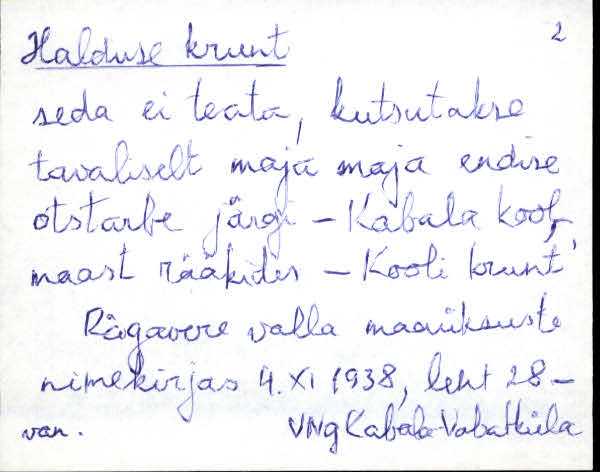 Halduse krunt 2
seda ei teata, kutsutakse
tavaliselt maja maja endise
otstarbe järgi – Kabala kool,
maast rääkides – Kooli krunt
Rägavere valla maaüksuste
nimekirjas 4. XI 1938, leht 28 –
van. VNg Kabala-Vabatküla